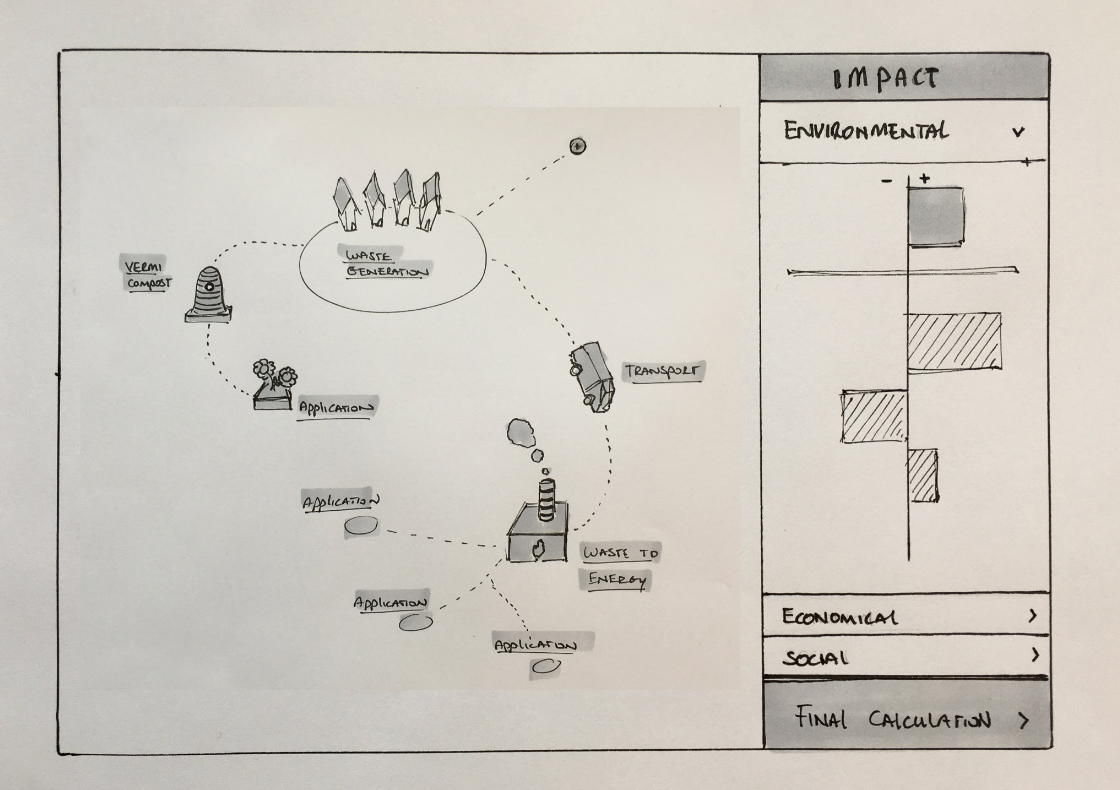 WASTE
GENERATION
VERMI
COMPOST
APPLICATION
TRANSPORT
APPLICATION
WASTE TO
ENERGY
APPLICATION
APPLICATION
IMPACT
ENVIRONMENTAL
- +
ECONOMICAL
SOCIAL
FINAL CALCULATION